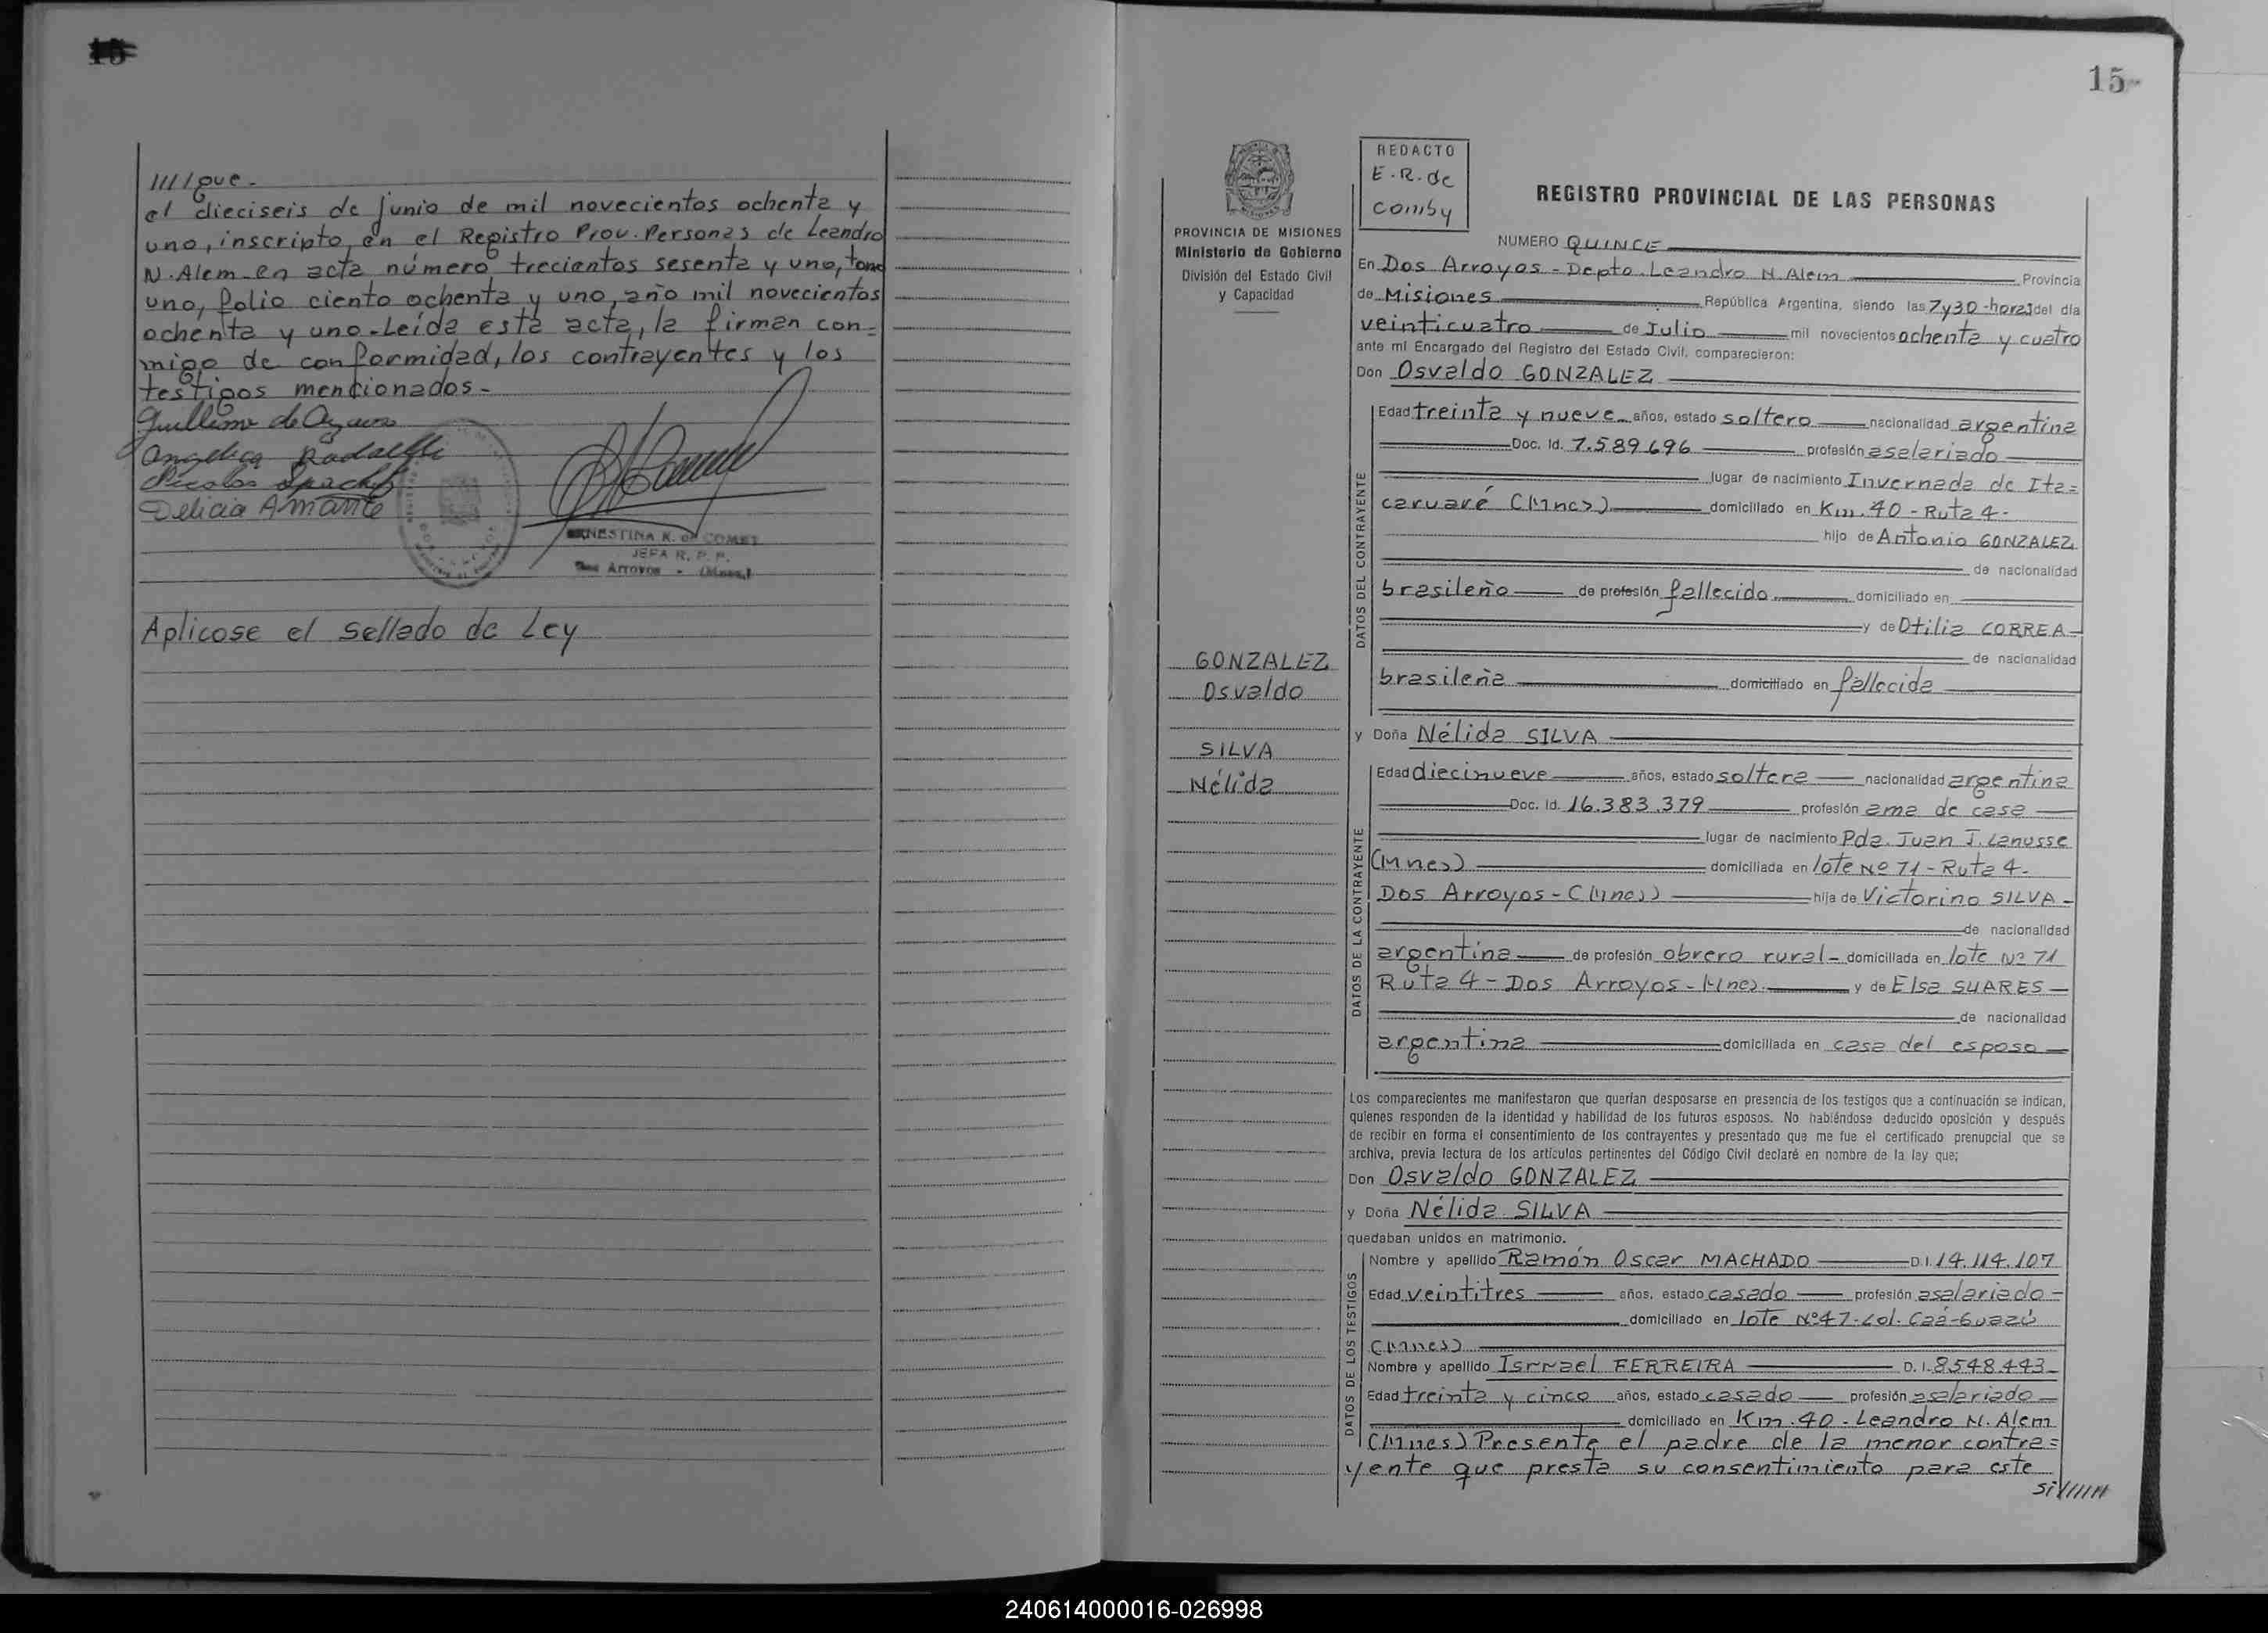 15
////que.-
el dieciseis de junio de mil novecientos ochenta y
uno, inscripto en el Registro Prov. Personas de Leandro
N. Alem en acta número trecientos sesenta y uno, tomo
uno, folio ciento ochenta y uno, año mil novecientos
ochenta y uno.-Leída esta acta, la firman con=
migo de conformidad, los contrayentes y los
testigos mencionados.-
Angelica
Delicia Amarite
ERNESTINA R. de COMBY
JEFA R. P. P.
Dos Arroyos - (Mnes.)
Aplicose el sellado de Ley
15
PROVINCIA DE MISIONES
Ministerio de Gobierno
División del Estado Civil
y Capacidad
GONZALEZ
Osvaldo
SILVA
Nélida
REDACTO
E.R. de
comby
REGISTRO PROVINCIAL DE LAS PERSONAS
NUMERO QUINCE
En Dos Arroyos - Depto. Leandro N. Alem Provincia
de Misiones República Argentina, siendo las 7y30-horas del día
veinticuatro de Julio mil novecientos ochenta y cuatro
ante mí Encargado del Registro del Estado Civil, comparecieron:
Don Osvaldo GONZALEZ
DATOS DEL CONTRAYENTE
Edad treinta y nueve años, estado soltero nacionalidad argentina
Doc. Id. 7.589.696 profesión asalariado
lugar de nacimiento Invernada de Ita=
caruaré (Mnes) domiciliado en Km. 40 - Ruta 4-
hijo de Antonio GONZALEZ
de nacionalidad
brasileño de profesión fallecido domiciliado en
y de Otilia CORREA
de nacionalidad
brasileña domiciliado en fallecida
y Doña Nélida SILVA
DATOS DE LA CONTRAYENTE
Edad diecinueve años, estado soltera nacionalidad argentina
Doc. Id. 16.383.379 profesión ama de casa
lugar de nacimiento Pda. Juan J. Lanusse
(Mnes) domiciliada en lote Nº 71 - Ruta 4.
Dos Arroyos - (Mnes) hija de Victorino SILVA
de nacionalidad
argentina de profesión obrero rural - domiciliada en lote Nº 71
Ruta 4 - Dos Arroyos - Mnes. y de Elsa SUARES
de nacionalidad
argentina domiciliada en casa del esposo
Los comparecientes me manifestaron que querían desposarse en presencia de los testigos que a continuación se indican,
quienes responden de la identidad y habilidad de los futuros esposos. No habiéndose deducido oposición y después
de recibir en forma el consentimiento de los contrayentes y presentado que me fue el certificado prenupcial que se
archiva, previa lectura de los artículos pertinentes del Código Civil declaré en nombre de la ley que;
Don Osvaldo GONZALEZ
y Doña Nélida SILVA
quedaban unidos en matrimonio.
DATOS DE LOS TESTIGOS
Nombre y apellido Ramón Oscar MACHADO D.I. 14.114.107
Edad veintitres años, estado casado profesión asalariado
domiciliado en lote Nº47-Col. Caá-Guazú
(Mnes)
Nombre y apellido Isrrael FERREIRA D. I. 8548.443
Edad treinta y cinco años, estado casado profesión asalariado
domiciliado en Km. 40 - Leandro N. Alem
(Mnes) Presente el padre de la menor contra=
yente que presta su consentimiento para este
si//////
240614000016-026998